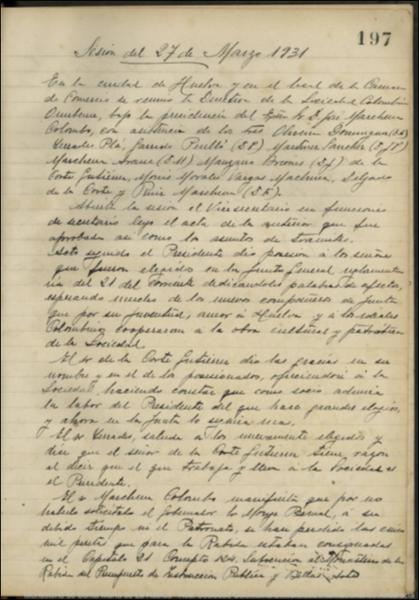 197
Sesión del 27 de Marzo 1931
En la ciudad de Huelva y en el local de la Camara
de Comercio se reunió la Directiva de la Sociedad Colombina
Onubense, bajo la presidencia del Sr. D. José Marchena
Colombo, con asistencia de los Sres Oliveira Dominguez
Terrades Plá, Garrido Perelló (D P.) Martinez Sanchez
Marchena (D. M) Manzano de la
Corte Gutierrez, Morales Vargas Machuca, Delgado
de la Corte y Ruiz Marchena
Abierta la sesión el Vicesecretario en funciones
de secretario leyo el acta de la anterior que fue
aprobada asi como los asuntos de tramite.
Acto seguido el Presidente dió posesión a los señores
que fueron elegidos en la Junta General reglamenta
ria del 21 del corriente dedicandoles palabras de afecto,
esperando mucho de los nuevos compañeros de Junta
que por su juventud, amor á Huelva y á los ideales
Colombinos cooperaran a la obra cultural y patriótica
de la Sociedad.
El sr de la Corte Gutierrez dió las gracias en su
nombre y en el de los posesionados, ofreciendose á la
Sociedad, haciendo constar que como socio, admira
la labor del Presidente del que hace grandes elogios,
y ahora en la Junta lo
El sr Terrades, saluda á los nuevamente elegidos y
dice que el señor de la Corte Gutierrez tiene razon
al decir que el que trabaja y lleva á la Sociedad es
el Presidente.
El sr Marchena Colombo manifiesta que por no
haberlo solicitado el Gobernador Sr Moya Bernal, á su
debido tiempo ni el Patronato, se han perdido las cinco
mil pesetas que para la Rabida estaban consignadas
en el Capitulo 21 Concepto Subvencion al Monasterio de la
Rabida del Presupuesto de Instruccion Publica y Bellas Artes